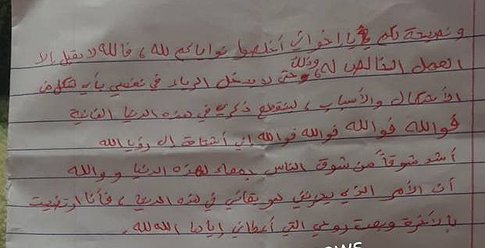 ونصيحة لكم يا إخواني أخلصوا نواياكم لله، فالله لا يقبل إلا
العمل الخالص له، وذلك حتى لا يدخل الرياء في نفسي بأي شكل من
الأشكال والأسباب، لتنقطع ذكري في هذه الدنيا الفانية
فوالله فوالله فوالله فوالله إني أشتاق إلى رؤيا الله
أشد شوقاً من شوق الناس جمعاء لهذه الدنيا ووالله
أن الأمر الذي يحزنني هو بقائي في هذه الدنيا، فأنا ارتضيت
بالآخرة وبعت روحي التي أعطاني إياها الله لله.